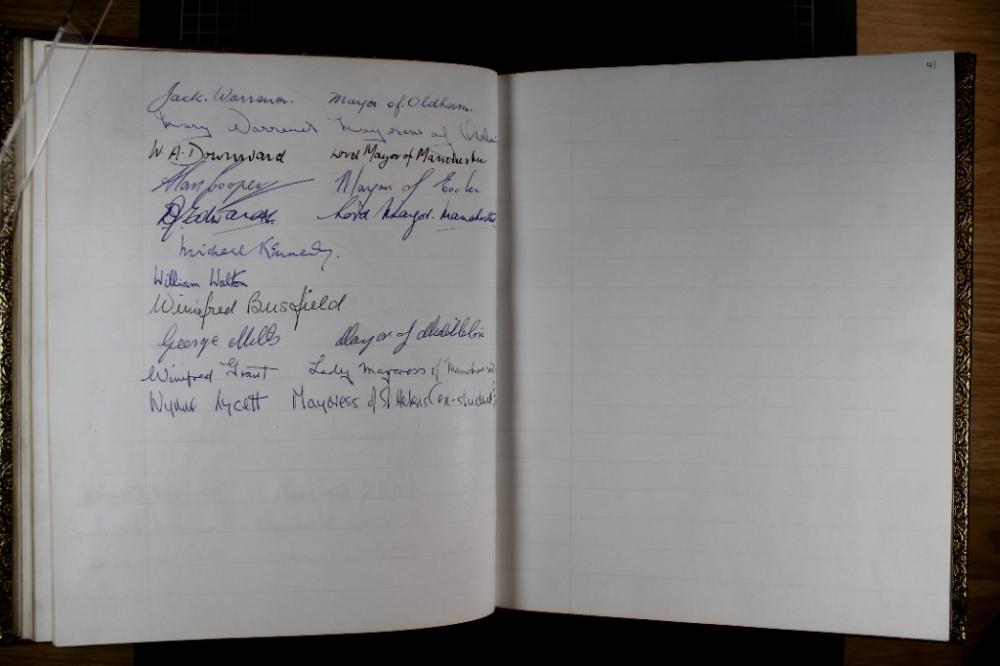 41
Jack. Warrener. Mayor of Oldham.
Mary Warrener Mayoress of
W. A. Downward Lord Mayor of Manchester
Alan Cooper Mayor of
D Edwards Lord Mayor. Manchester
Michael Kennedy.
William Walton
Winifred Busfield
George Mills Mayor of
Winifred Grant Lady Mayoress of Manchester
Lycett Mayoress of St Helens (ex-student)